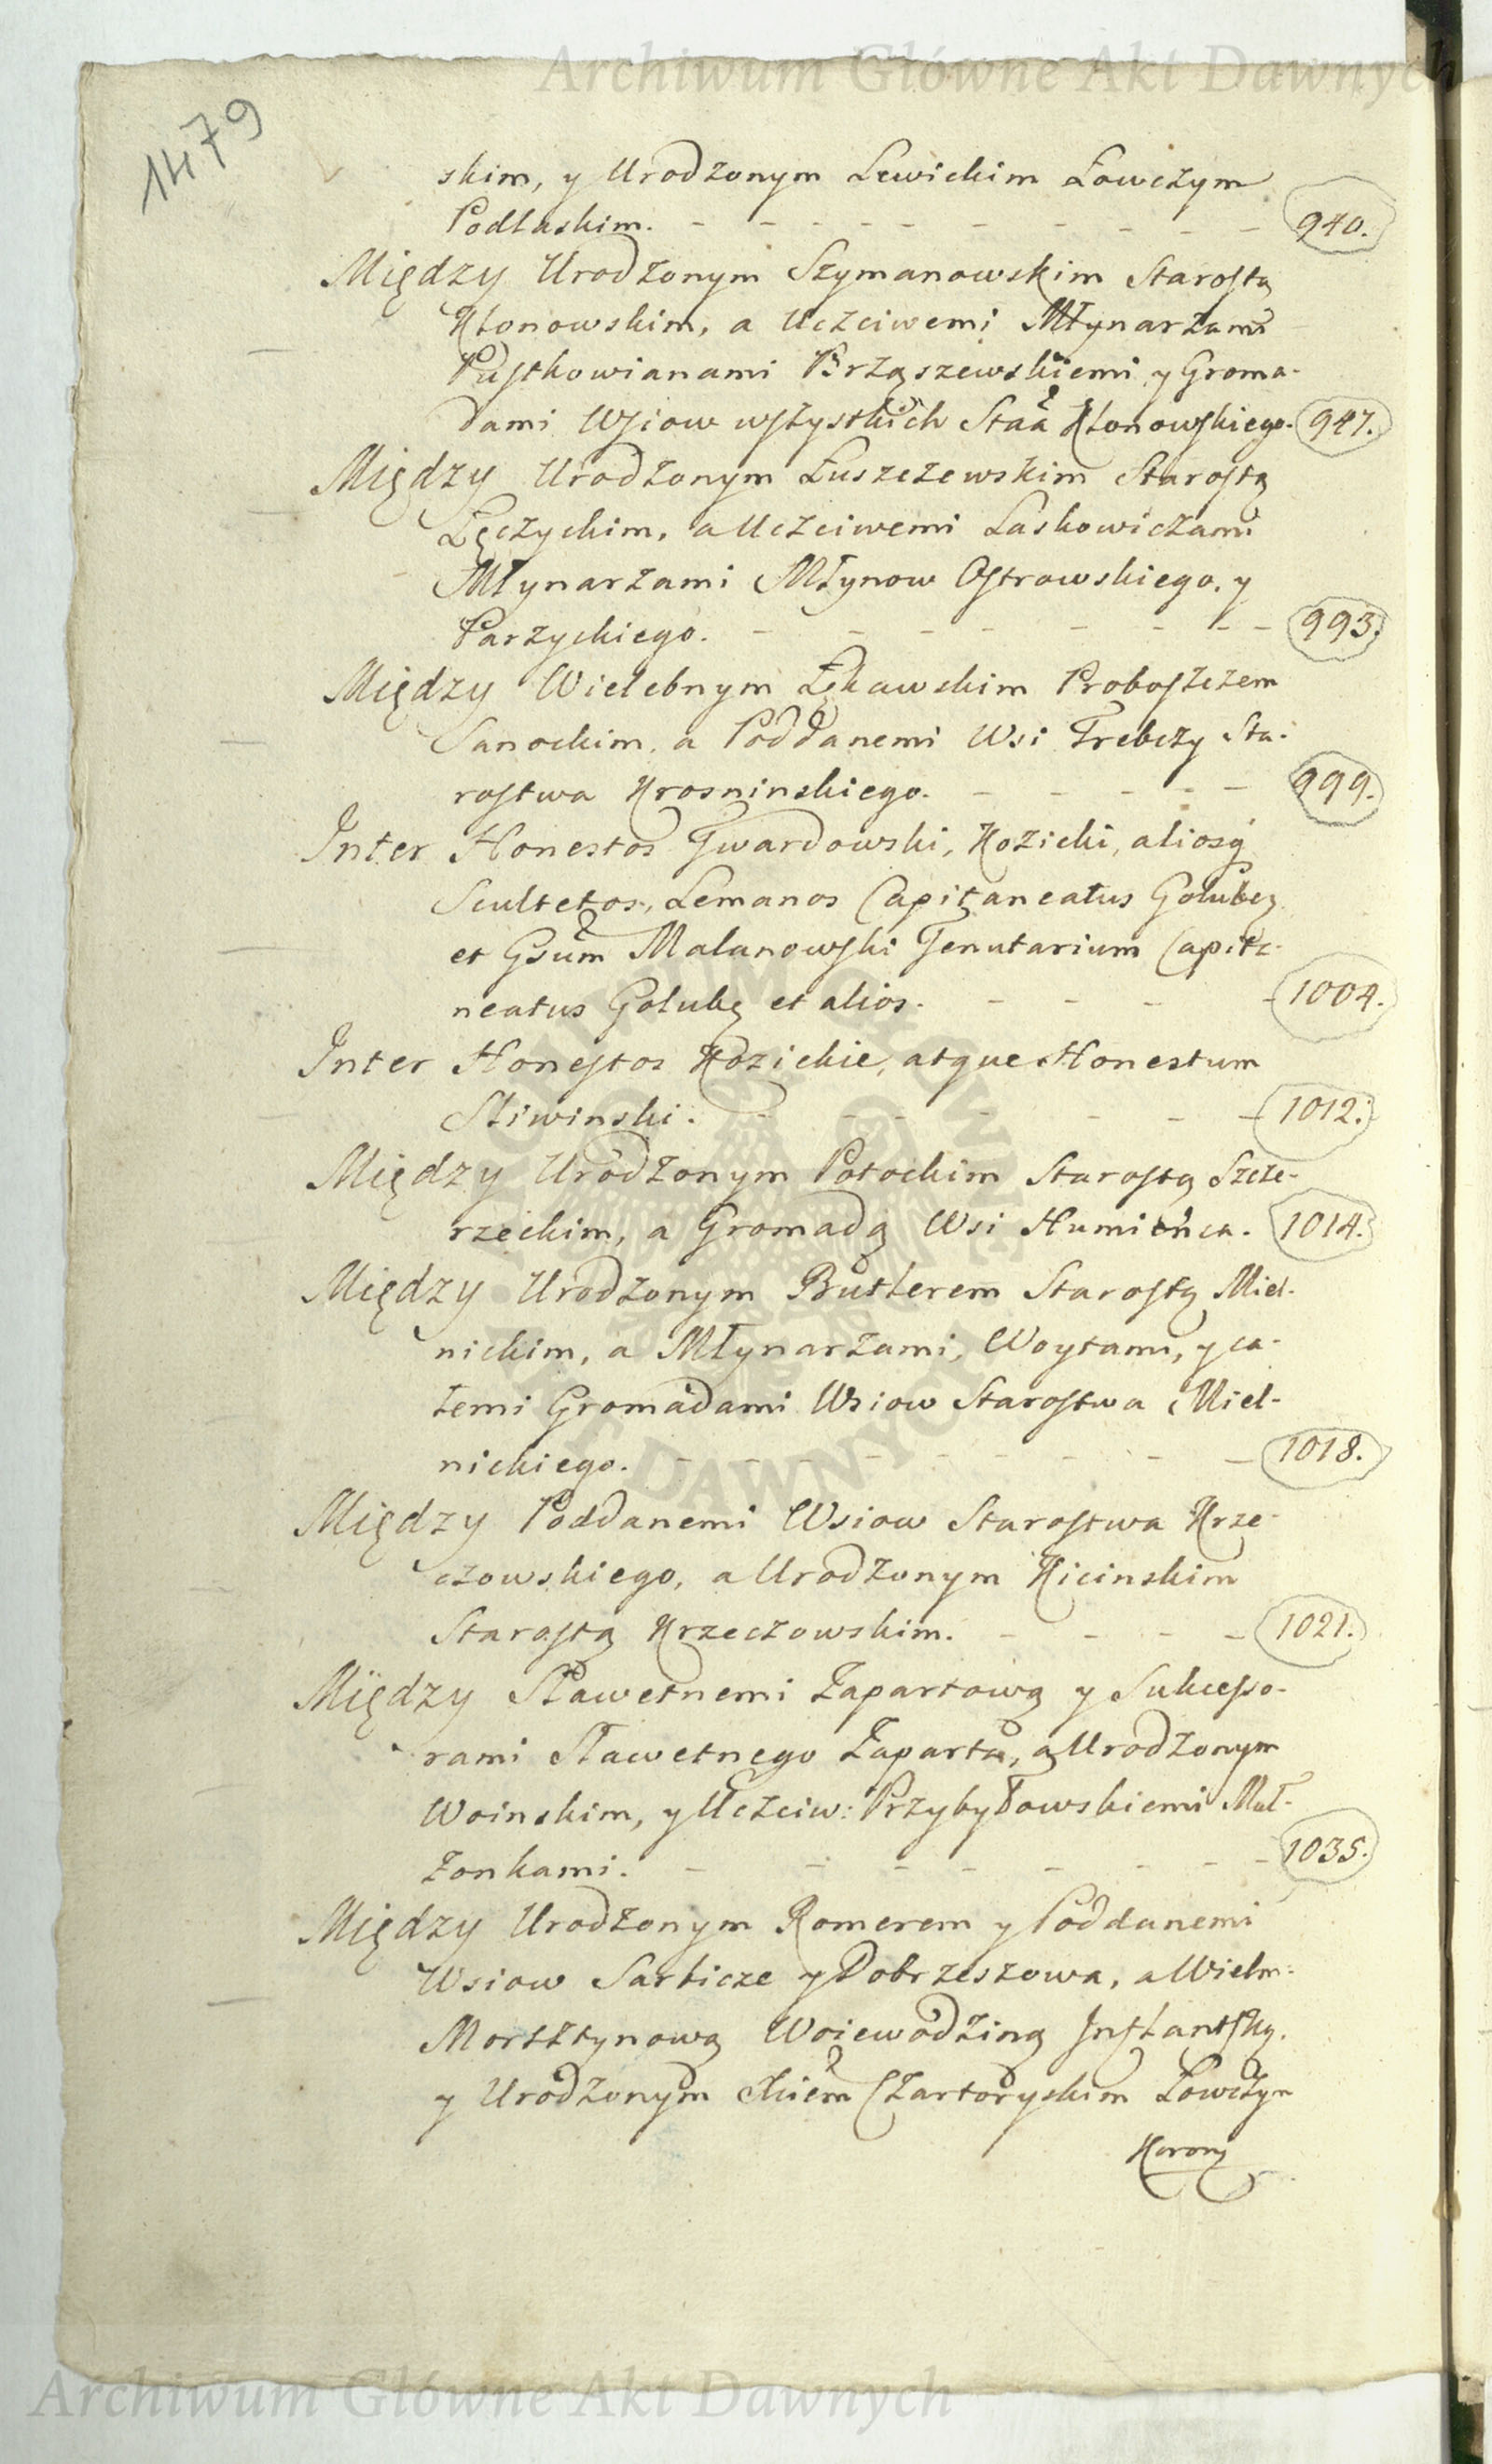 Archiwum Główne Akt Dawnych
1479
skim, y Urodzonym Lewickim Łowczym
Podlaskim. - - - - - - - - 940.
Między Urodzonym Szymanowskim Starostą
Klonowskim, a Uczciwemi Młynarzami
Pustkowianami Brząszewskiemi y Groma-
dami Wsiow wszystkich Staa Klonowskiego. 947.
Między Urodzonym Łuszczewskim Starostą
Łęczyckim, a Uczciwemi Laskowiczami
Młynarzami Młynow Ostrowskiego, y
Parzyckiego. - - - - - - - - 993.
Między Wielebnym Łękawskim Proboszczem
Sanockim, a Poddanemi Wsi Trebczy Sta-
rostwa Krosninskiego. - - - - - 999.
Inter Honestos Gwardowski, Kozicki, aliosq
Scultetos, Lemanos Capitaneatus Golubę
et Gsum Malanowski Tenutarium Capita-
neatus Golubę et alios. - - - - 1004.
Inter Honestos Kozickie, atque Honestum
Sliwinski. - - - - - - - 1012.
Między Urodzonym Potockim Starostą Szcze-
rzeckim, a Gromadą Wsi Humieńca. 1014.
Między Urodzonym Butlerem Starostą Miel-
nickim, a Młynarzami, Woytami, y ca-
łemi Gromadami Wsiow Starostwa Miel-
nickiego. - - - - - - - - 1018.
Między Poddanemi Wsiow Starostwa Krze-
czowskiego, a Urodzonym Kicinskim
Starostą Krzeczowskim. - - - - 1021.
Między Sławetnemi Zapartową y Sukcesso-
rami Sławetnego Zaparta, a Urodzonym
Woinskim, y Uczciw: Przybyłowskiemi Mał-
żonkami. - - - - - - - - 1035.
Między Urodzonym Romerem y Poddanemi
Wsiow Sarbicze y Dobrzeszowa, a Wielm:
Morsztynową Woiewodziną Inflantską,
y Urodzonym Xciem Czartoryskim Łowczym
Korony
ARCHIWUM GŁÓWNE AKT DAWNYCH
Archiwum Główne Akt Dawnych